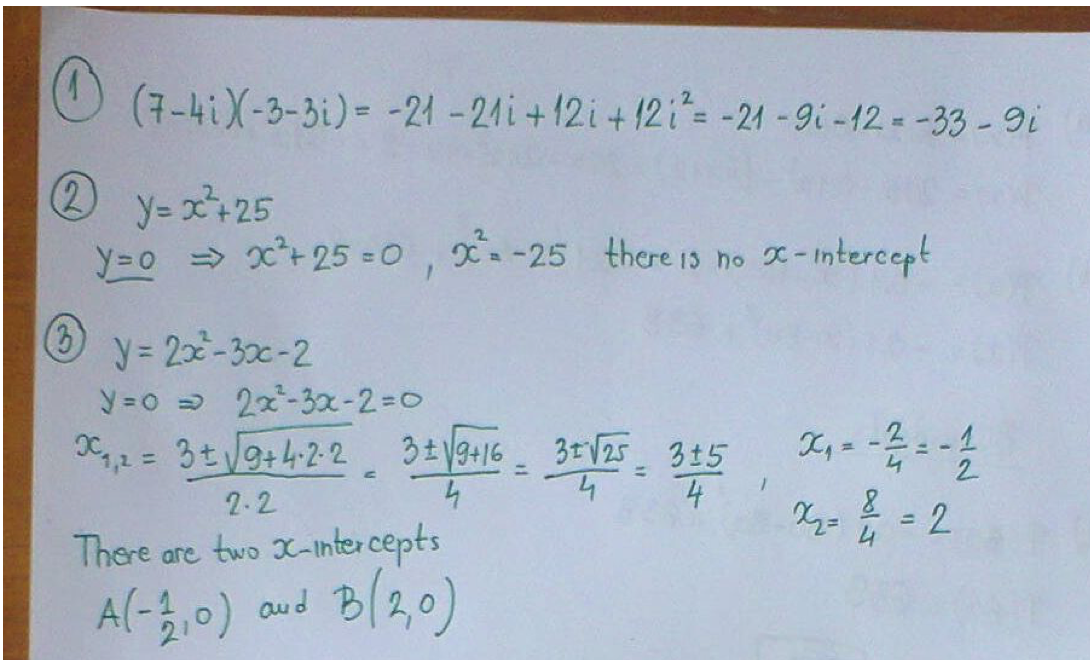 ① (7-4i)(-3-3i) = -21 -21i +12i +12i² = -21 -9i -12 = -33 - 9i
② y = x²+25
y=0 ⇒ x²+25=0 , x² = -25 there is no x-intercept
③ y = 2x²-3x-2
y=0 ⇒ 2x²-3x-2=0
x₁,₂ = (3±√(9+4·2·2))/(2·2) = (3±√(9+16))/4 = (3±√25)/4 = (3±5)/4 , x₁ = -2/4 = -1/2
x₂ = 8/4 = 2
There are two x-intercepts
A(-1/2,0) and B(2,0)